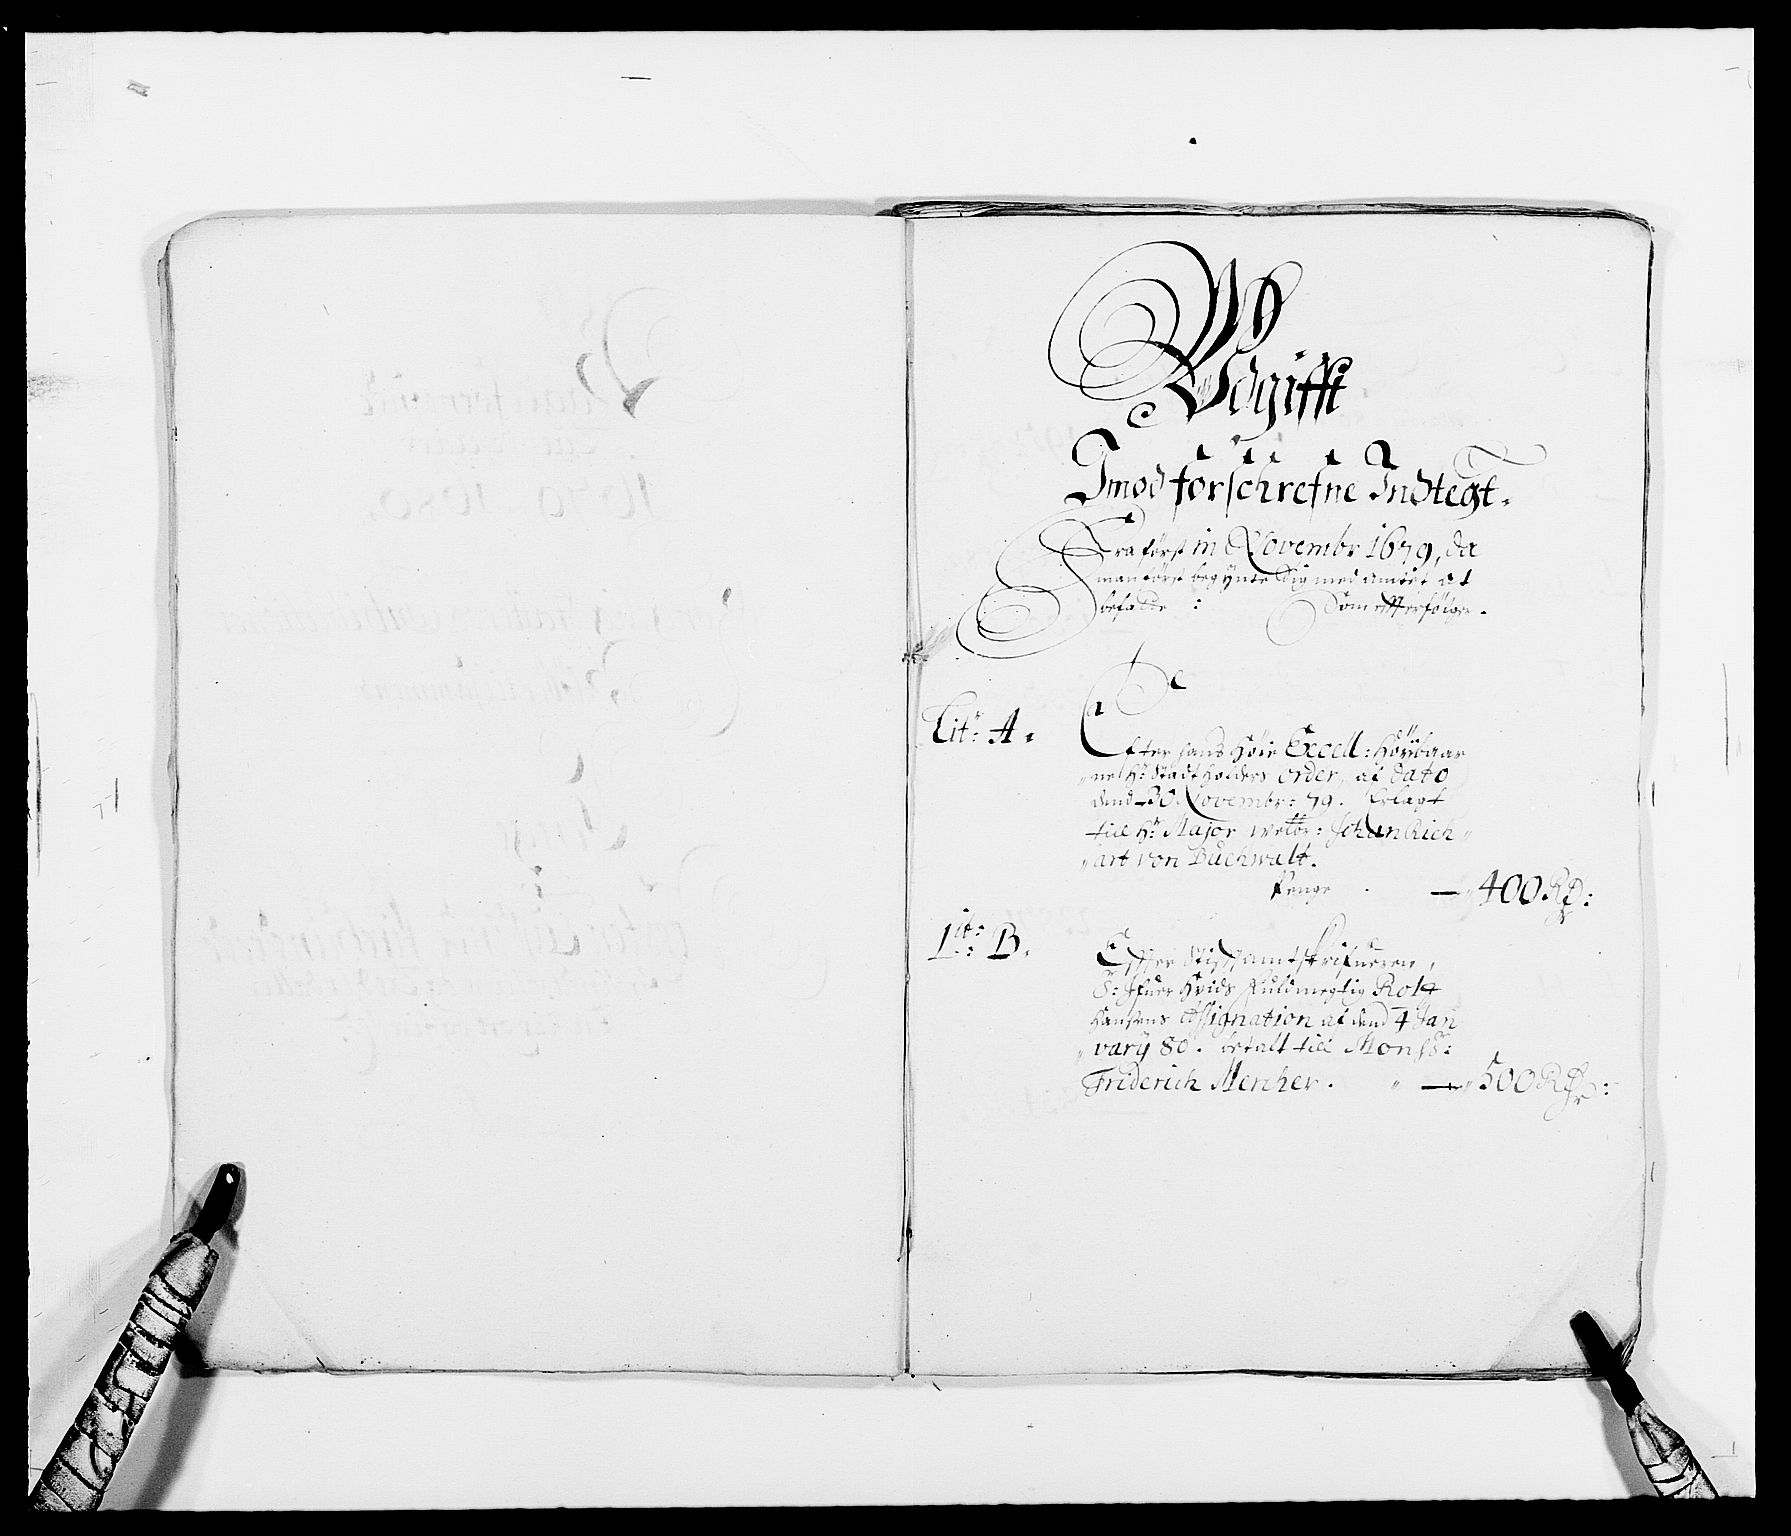 Udgifft
Imod forschrefne Indtegt.
Fra først in Novembr 1679, da
man først begÿnte Sig med amtet at
befatte : Som efferfølger.
Lit: A.
Efter hans Höie Excell: Höÿbaar
ne Hr Stadtholders order, af dato
dend 30 Novembr: 79. Erlagt
till Hr Major welbr: Johan Rich
art von Buchwalt.
Penge — 400 Rdr:
Lit: B.
Effter Stigtsamtskrifueren,
S: Ifuer Hvids Fuldmegtig Rolf
Hansens Assignation af dend 4 Jan
varÿ 80. betalt till Monsr:
Friderich Mercker. — 500 Rdr: